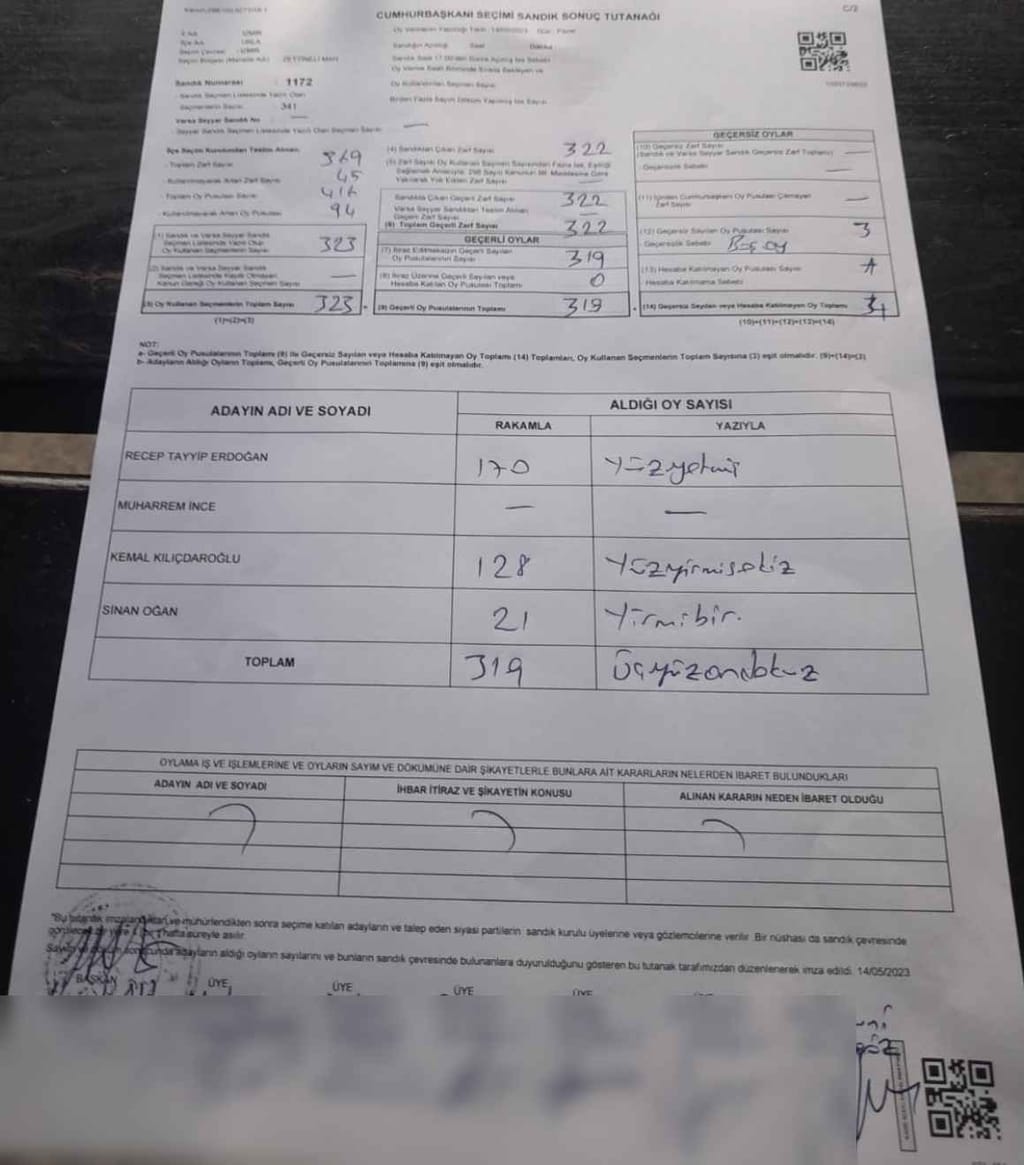 CUMHURBAŞKANI SEÇİMİ SANDIK SONUÇ TUTANAĞI
C/2
İl Adı : İZMİR
İlçe Adı : URLA
Seçim Çevresi : İZMİR
ZEYTİNELİ MAH.
Sandık Numarası 1172
Sandık Seçmen Listesinde Yazılı Olan
Seçmenlerin Sayısı 341
Varsa Seyyar Sandık No —
Seyyar Sandık Seçmen Listesinde Yazılı Olan Seçmen Sayısı —
Oy Kullandırılan Seçmen Sayısı
İlçe Seçim Kurulundan Teslim Alınan;
- Toplam Zarf Sayısı 369
- Kullanılmayarak Artan Zarf Sayısı 45
- Toplam Oy Pusulası Sayısı 416
- Kullanılmayarak Artan Oy Pusulası 94
(1) Sandık ve Varsa Seyyar Sandık
Seçmen Listesinde Yazılı Olup
Oy Kullanan Seçmenlerin Sayısı 323
(2) Sandık ve Varsa Seyyar Sandık
Seçmen Listesinde Kayıtlı Olmayan
Kanun Gereği Oy Kullanan Seçmen Sayısı —
(3) Oy Kullanan Seçmenlerin Toplam Sayısı 323 =
(1)+(2)=(3)
(4) Sandıktan Çıkan Zarf Sayısı 322
(5) Zarf Sayısı Oy Kullanan Seçmen Sayısından Fazla İse, Eşitliği
Sağlamak Amacıyla, 298 Sayılı Kanunun 98. Maddesine Göre
Yakılarak Yok Edilen Zarf Sayısı —
Sandıkta Çıkan Geçerli Zarf Sayısı 322
Varsa Seyyar Sandıktan Teslim Alınan
Geçerli Zarf Sayısı —
(6) Toplam Geçerli Zarf Sayısı 322
GEÇERLİ OYLAR
(7) İtiraz Edilmeksizin Geçerli Sayılan
Oy Pusulalarının Sayısı 319
(8) İtiraz Üzerine Geçerli Sayılan veya
Hesaba Katılan Oy Pusulası Toplamı 0
(9) Geçerli Oy Pusulalarının Toplamı 319 +
GEÇERSİZ OYLAR
(10) Geçersiz Zarf Sayısı
(Sandık ve Varsa Seyyar Sandık Geçersiz Zarf Toplamı) —
Geçersizlik Sebebi —
(11) İçinden Cumhurbaşkanı Oy Pusulası Çıkmayan
Zarf Sayısı —
(12) Geçersiz Sayılan Oy Pusulası Sayısı 3
Geçersizlik Sebebi Boş oy
(13) Hesaba Katılmayan Oy Pusulası Sayısı
Hesaba Katılmama Sebebi
(14) Geçersiz Sayılan veya Hesaba Katılmayan Oy Toplamı
(10)+(11)+(12)+(13)=(14)
NOT:
a- Geçerli Oy Pusulalarının Toplamı (9) ile Geçersiz Sayılan veya Hesaba Katılmayan Oy Toplamı (14) Toplamları, Oy Kullanan Seçmenlerin Toplam Sayısına (3) eşit olmalıdır. (9)+(14)=(3)
b- Adayların Aldığı Oyların Toplamı, Geçerli Oy Pusulalarının Toplamına (9) eşit olmalıdır.
ADAYIN ADI VE SOYADI
ALDIĞI OY SAYISI
RAKAMLA YAZIYLA
RECEP TAYYİP ERDOĞAN 170 Yüzyetmiş
MUHARREM İNCE — —
KEMAL KILIÇDAROĞLU 128 Yüzyirmisekiz
SİNAN OĞAN 21 Yirmibir.
TOPLAM 319 Üçyüzondokuz
OYLAMA İŞ VE İŞLEMLERİNE VE OYLARIN SAYIM VE DÖKÜMÜNE DAİR ŞİKAYETLERLE BUNLARA AİT KARARLARIN NELERDEN İBARET BULUNDUKLARI
ADAYIN ADI VE SOYADI İHBAR İTİRAZ VE ŞİKAYETİN KONUSU ALINAN KARARIN NEDEN İBARET OLDUĞU
"Bu tutanak imzalandıktan ve mühürlendikten sonra seçime katılan adayların ve talep eden siyasi partilerin sandık kurulu üyelerine veya gözlemcilerine verilir. Bir nüshası da sandık çevresinde
görülecek bir yere 1 (bir) hafta süreyle asılır.
Sayım ve döküm sonucunda adayların aldığı oyların sayılarını ve bunların sandık çevresinde bulunanlara duyurulduğunu gösteren bu tutanak tarafımızdan düzenlenerek imza edildi. 14/05/2023
BAŞKAN ÜYE ÜYE ÜYE ÜYE